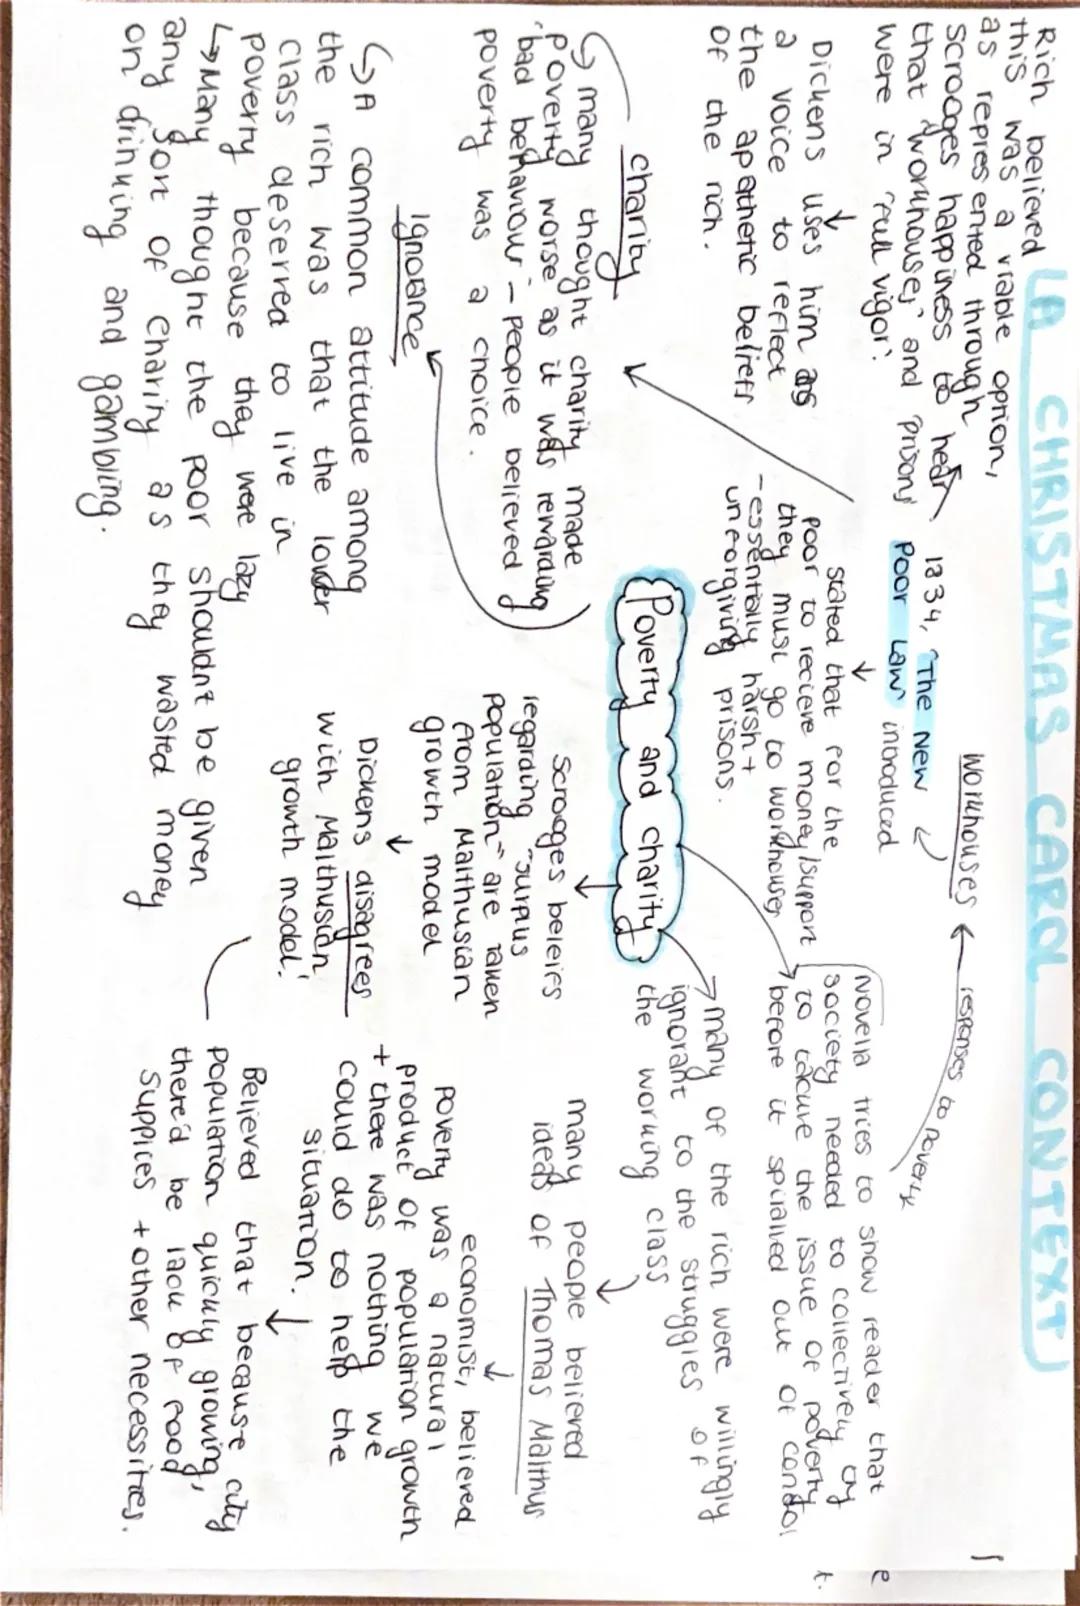 LA CHRISTMAS CAROL CONTEXT
Workhouses
responses to poverty
1834, "The New
Poor Law" introduced
stated that for the
poor to recieve money/support
they must go to workhouses
- essentially harsh +
uneorgiving prisons.
Rich believed
this was a viable option,
as represented through
Scrooges happiness to hear
that "workhouses" and prisons
were in "full vigor".
Dickens uses him as
a voice to reflect
the apathetic beliefs
of the rich.
Novella tries to show reader that
society needed to collectively try
to tacuke the issue of poverty
before it spiralled out of control
Poverty and charity
many of the rich were willingly
ignorant to the struggles of
the working class
many people believed
ideas of Thomas Malthus
economist, believed
poverty was a natural
product of population growth
+ there was nothing we
could do to help the
situation.
Believed that because city
population quickly growing,
there'd be lack of food
supplies + other necessities.
Scrooges beleifs
regarding "surplus
population" are taken
from Malthusian
growth model
Dickens disagrees
with Malthusian
growth model!
charity
many thought charity made
poverty worse as it was rewarding
'bad behaviour' - people believed
poverty was a choice.
ignorance
A common attitude among
the rich was that the lower
class deserved to live in
poverty because they were lazy
Many thought the poor shouldnt be given
any sort of charity as they wasted money
on drinking and gambling.
e
t.